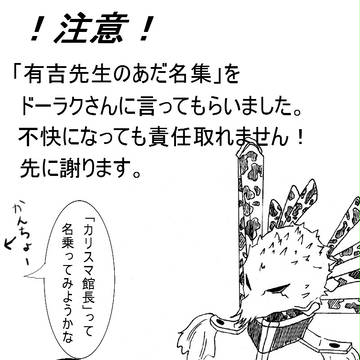 ！注意！
「有吉先生のあだ名集」を
ドーラクさんに言ってもらいました。
不快になっても責任取れません！
先に謝ります。
かんちょー
「カリスマ館長」って
名乗ってみようかな